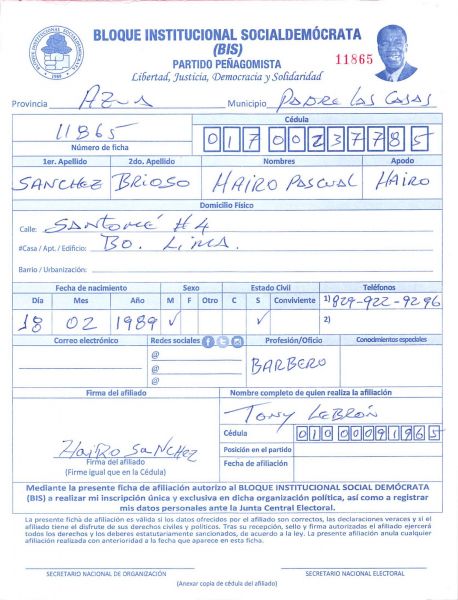 BLOQUE INSTITUCIONAL SOCIALDEMÓCRATA
(BIS)
PARTIDO PEÑAGOMISTA
11865
Libertad, Justicia, Democracia y Solidaridad
Provincia AZUA Municipio PADRE LAS CASAS
11865
Número de ficha
Cédula
01700237785
1er. Apellido 2do. Apellido Nombres Apodo
SANCHEZ BRIOSO HAIRO PASCUAL HAIRO
Domicilio Físico
Calle: SANTOMÉ #4
#Casa / Apt. / Edificio: BO. LIMA.
Barrio / Urbanización:
Fecha de nacimiento Sexo Estado Civil Teléfonos
Día Mes Año M F Otro C S Conviviente 1) 829-922-9296
18 02 1989 ✓ ✓ 2)
Correo electrónico Redes sociales Profesión/Oficio Conocimientos especiales
@
@
@
BARBERO
Firma del afiliado Nombre completo de quien realiza la afiliación
TONY LEBRÓN
Cédula 01000091865
HAIRO SANCHEZ
Firma del afiliado
(Firme igual que en la Cédula)
Posición en el partido
Fecha de afiliación
Mediante la presente ficha de afiliación autorizo al BLOQUE INSTITUCIONAL SOCIAL DEMÓCRATA
(BIS) a realizar mi inscripción única y exclusiva en dicha organización política, así como a registrar
mis datos personales ante la Junta Central Electoral.
La presente ficha de afiliación es válida si los datos ofrecidos por el afiliado son correctos, las declaraciones veraces y si el
afiliado tiene el disfrute de sus derechos civiles y políticos. Tras su recepción, sello y firma autorizados el afiliado ejercerá
todos los derechos y los deberes estatutariamente sancionados, de acuerdo a la ley. La presente afiliación anula cualquier
afiliación realizada con anterioridad a la fecha que aparece en esta ficha.
SECRETARIO NACIONAL DE ORGANIZACIÓN SECRETARIO NACIONAL ELECTORAL
(Anexar copia de cédula del afiliado)